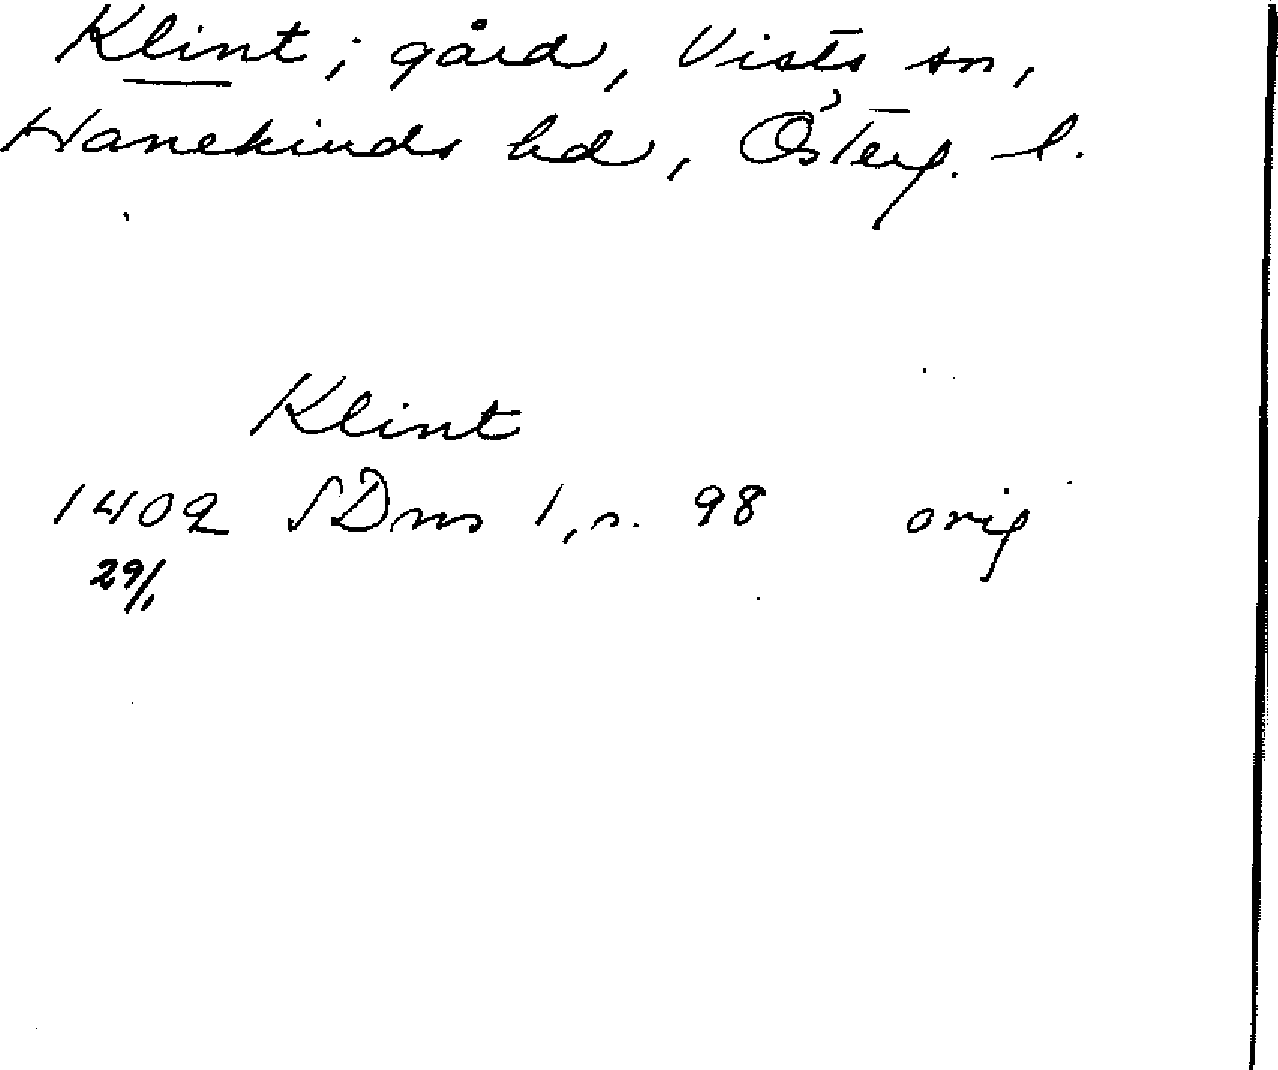 Klint; gård, Vists sn,
Hanekinds hd, Österg. l.
Klint
1402 SDns 1, s. 98 orig
29/1